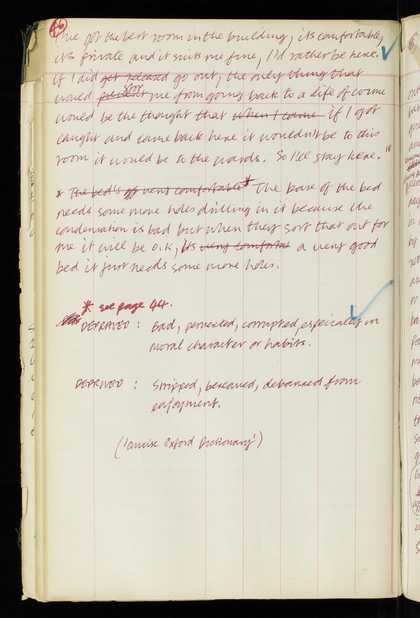 I've got the best room in the building, its comfortable,
its private and it suits me fine, I'd rather be here.
If I did get released go out, the only thing that
would prevent stop me from going back to a life of crime
would be the thought that when I came if I got
caught and came back here it wouldn't be to this
room it would be to the wards. So I'll stay here."
* The bed's very comfortable* The base of the bed
needs some more holes drilling in it because the
condensation is bad but when they sort that out for
me it will be O.K, its very comfortable a very good
bed it just needs some more holes.
* see page 44.
DEPRAVED : Bad, perverted, corrupted, especially in
moral character or habits.
DEPRIVED : Stripped, bereaved, debarred from
enjoyment.
('Concise Oxford Dictionary')